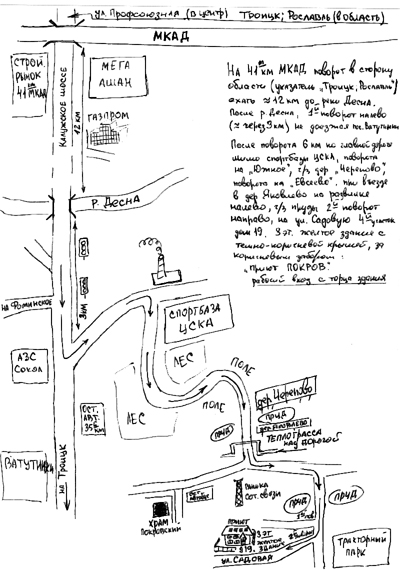 ул. Профсоюзная (в центр)
Троицк; Рославль (в область)
МКАД
СТРОЙ
РЫНОК
41 МКАД
МЕГА
АШАН
Калужское шоссе
12 км
ГАЗПРОМ
р. Десна
На 41-ом км МКАД, поворот в сторону
области (указатель „Троицк, Рославль")
ехать ≈ 12 км до реки Десна.
После р. Десна, 1-й поворот налево
(≈ через 3 км) не доезжая пос. Ватутинки
После поворота 6 км по главной дороге
мимо спортбазы ЦСКА, поворота
на „Южное", ч/з дер „Черепово",
поворота на „Евсеево", при въезде
в дер Яковлево на развилке
налево, ч/з пруды 2-й поворот
направо, на ул. Садовую 4-й участок
дом 19. 3 эт. желтое здание с
темно-коричневой крышей, за
коричневым забором:
„Приют ПОКРОВ".
рабочий вход с торца здания
3 км
на Фоминское
СПОРТБАЗА
ЦСКА
АЗС
Сокол
ЛЕС
ЛЕС
ПОЛЕ
ПОЛЕ
ОСТ.
АВТ.
35 км
дер Черепово
ПРУД
ПРУД
ТЕПЛОТРАССА
НАД ДОРОГОЙ
ВАТУТИНКИ
на Троицк
ВЫШКА
СОТ. СВЯЗИ
ПРУД
ПРУД
ХРАМ
ПОКРОВСКИЙ
ПРИЮТ
3 ЭТ.
ЖЕЛТОЕ
ЗДАНИЕ
19
ул. САДОВАЯ
ТРАКТОРНЫЙ
ПАРК